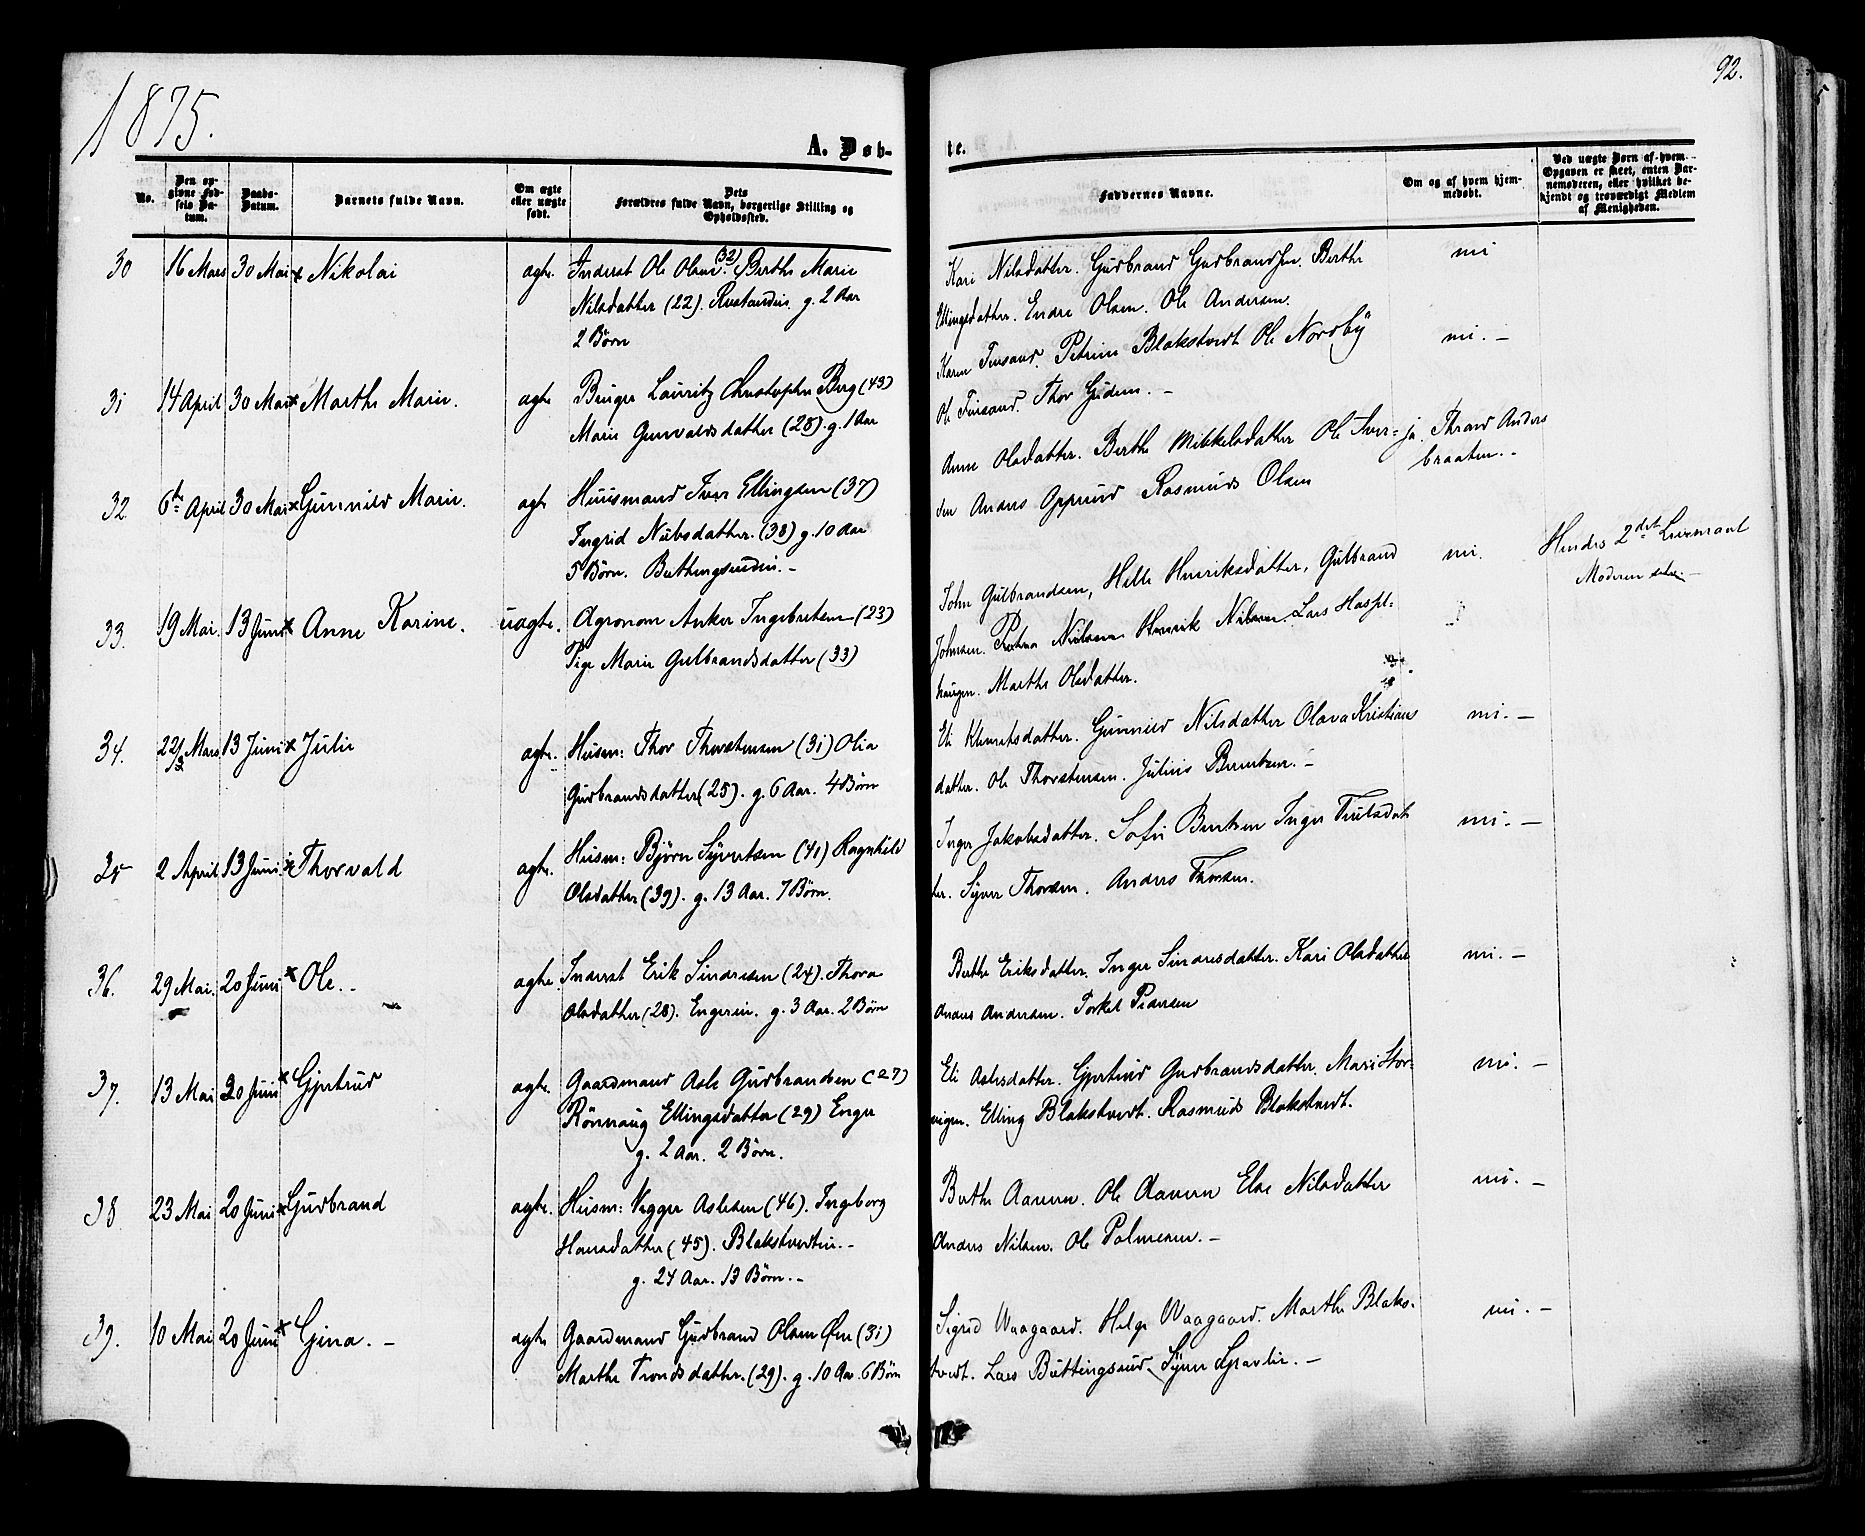 1875.
92.
A. Døb-
te.
No.
Den opgivne Fødsels Datum.
Daabs-Datum.
Barnets fulde Navn.
Om ægte eller uægte født.
Dets Forældres fulde Navn, borgerlige Stilling og Opholdssted.
Faddernes Navne.
Om og af hvem hjemmedøbt.
Ved uægte Børn af hvem Opgaven er skeet, enten Barnemoderen, eller hvilket bekjendt og troværdigt Medlem af Menigheden.
30 16 Mars 30 Mai x Nikolai ægte. Inderst Ole Olsen (32). Berthe Marie
Nilsdatter (22). g. 2 Aar
2 Børn
Kari Nilsdatter. Gudbrand Gudbrandsen. Berthe
Ellingsdatter. Endre Olsen. Ole Andersen.
ni
31 14 April 30 Mai x Marthe Marie. ægte Lauritz Christopher Berg (43)
Marie Gunvaldsdatter (28). g. 1 Aar
Karen Finsand. Petrine Blakstvedt Ole Nordby
Ole Finsand. Thor Gudem. -
ni. -
32. 6te April 30 Mai x Gunnild Marie. ægt. Huusmand Iver Ellingsen (37)
Ingrid Nubsdatter. (38) g. 10 Aar
5 Børn. Buttengsrudei. -
Anne Olsdatter. Berthe Mikkelsdatter Ole Iver-
sen Anders Opperud Rasmuds Olsen
ja. Thrond Anders
braaten. -
33. 19 Mai. 13 Juni x Anne Karine. uægte. Agronom Anker Ingebretsen (23)
Pige Marie Gulbrandsdatter (33)
John Gulbrandsen, Helle Henriksdatter, Gulbrand
Johnsen. Nielsen Henrik Nilsen. Lars Haspl-
haugen. Marthe Olsdatter.
ni.
Hendes 2det Leiermaal
Moderen selv. -
34. 22/3 Mars 13 Juni x Julie ægte. Husm: Thor Thorstensen (31) Olia
Gudbrandsdatter (25). g. 6 Aar. 4 Børn
Eli Klemetsdatter. Gunnild Nilsdatter Olava Kristians
datter. Ole Thorstensen. Julius Berntsen. -
ni. -
35 2 April 13 Juni x Thorvald ægte. Husm: Bjørn Syvertsen (41) Ragnhild
Olsdatter (39). g. 13 Aar. 7 Børn.
Inger Jakobsdatter. Sofie Berntsen Inger Truelsdat
ter. Syver Thorsen. Anders Thorsen.
ni. -
36. 29 Mai. 20 Juni x Ole. - ægte. Inderst Erik Sindresen (24). Thora
Olsdatter (28). Engerei. g. 3 Aar. 2 Børn
Berthe Eriksdatter. Inger Sindresdatter. Kari Olsdatter
Anders Andersen. Torkel Pedersen
ni. -
37. 13 Mai 20 Juni x Gjertrud ægte. Gaardmand Asle Gudbrandsen (27)
Rønnaug Ellingsdatter (29) Enger
g. 2 Aar. 2 Børn.
Eli Aslesdatter. Gjertrud Gudbrandsdatter. Mari Stor-
vigen. Elling Blakstvedt. Rasmuds Blakstvedt.
ni. -
38. 23 Mai 20 Juni x Gudbrand ægte. Husm: Vegger Aslesen (46). Ingeborg
Hansdatter (45). Blakstvedtei. -
g. 24 Aar. 13 Børn. -
Berthe Aaveren. Ole Aaveren Else Nilsdatter
Anders Nilsen. Ole Palmesen. -
ni. -
39. 10 Mai 20 Juni x Gina. - ægte Gaardmand Gudbrand Olsen Øen (31)
Marthe Trondsdatter. (29). g. 10 Aar. 6 Børn
Sigrid Waagaard. Helge Waagaard. Marthe Blaks-
tvedt. Lars Buttingsrud. Syver Gravlie. -
ni. -